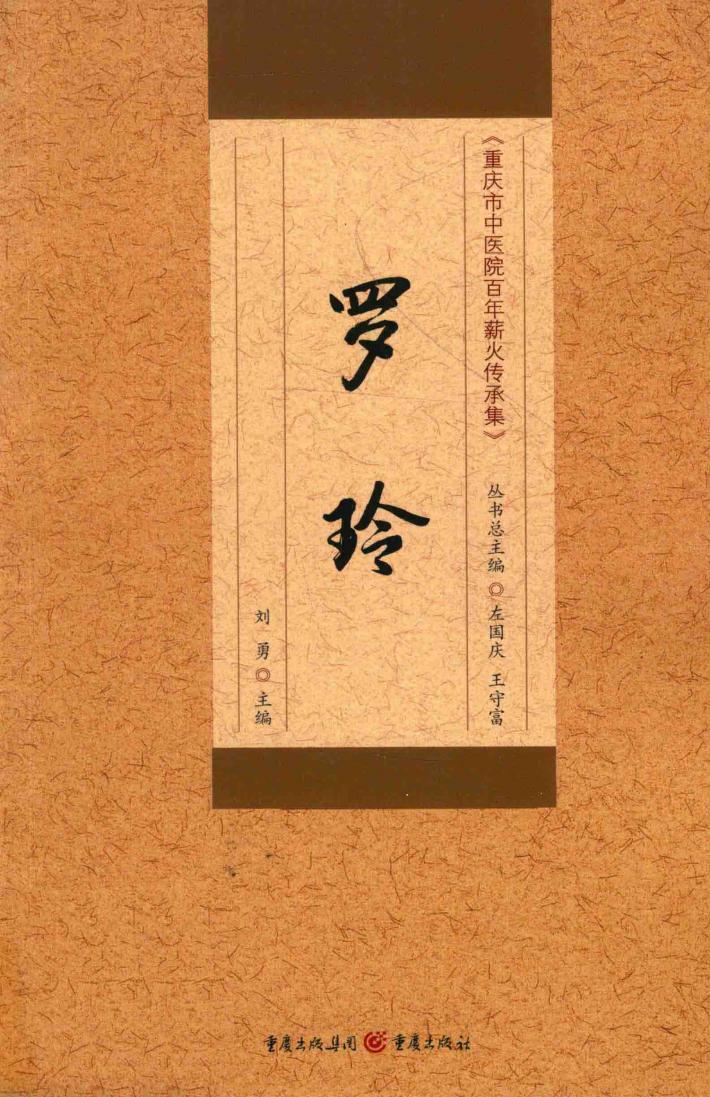 《重庆市中医院百年薪火传承集》
丛书总主编◎左国庆 王守富
罗玲
刘勇◎主编
重庆出版集团 重庆出版社